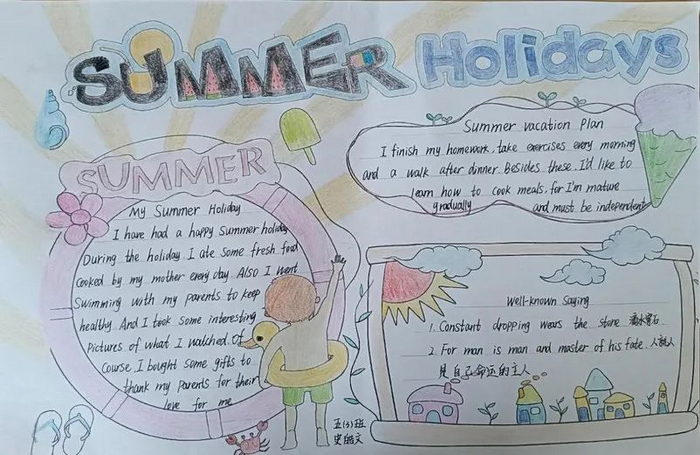 SUMMER Holidays
SUMMER
My Summer Holiday
I have had a happy summer holiday.
During the holiday I ate some fresh food
cooked by my mother every day. Also I went
Swimming with my parents to keep
healthy. And I took some interesting
pictures of what I watched. Of
course I bought some gifts to
thank my parents for their
love for me
Summer vacation Plan
I finish my homework, take exercises every morning
and a walk after dinner. Besides these. I'd like to
learn how to cook meals, for I'm mature
gradually and must be independent
Well-known Saying
1. Constant dropping wears the stone 滴水穿石
2. For man is man and master of his fate. 人就人
是自己命运的主人
五(3)班